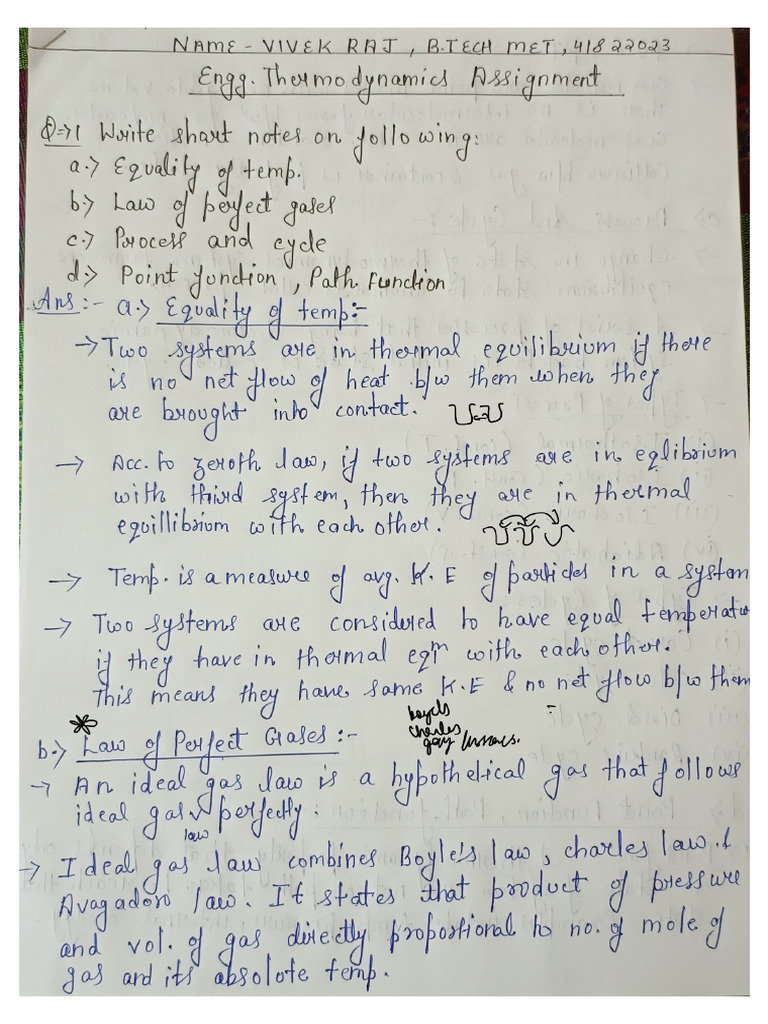 NAME - VIVEK RAJ, B.TECH MET, 41822023
Engg. Thermodynamics Assignment
Q⇒1 Write short notes on following:
a.> Equality of temp.
b.> Law of perfect gases
c.> Process and cycle
d.> Point function, Path Function
Ans:- a.> Equality of temp:-
→ Two systems are in thermal equilibrium if there
is no net flow of heat b/w them when they
are brought into contact.
→ Acc. to zeroth law, if two systems are in eqlibrium
with third system, then they are in thermal
equillibrium with each other.
→ Temp. is a measure of avg. K.E of particles in a system
→ Two systems are considered to have equal temperatu
if they have in thermal eqm with each other.
This means they have same K.E & no net flow b/w them
b.> Law of Perfect Gases:-
boyels
charles
gay lussacs.
→ An ideal gas law is a hypothetical gas that follows
ideal gas law perfectly.
→ Ideal gas law combines Boyle's law, charles law &
Avagadoro law. It states that product of pressure
and vol. of gas directly proportional to no. of mole of
gas and its absolute temp.